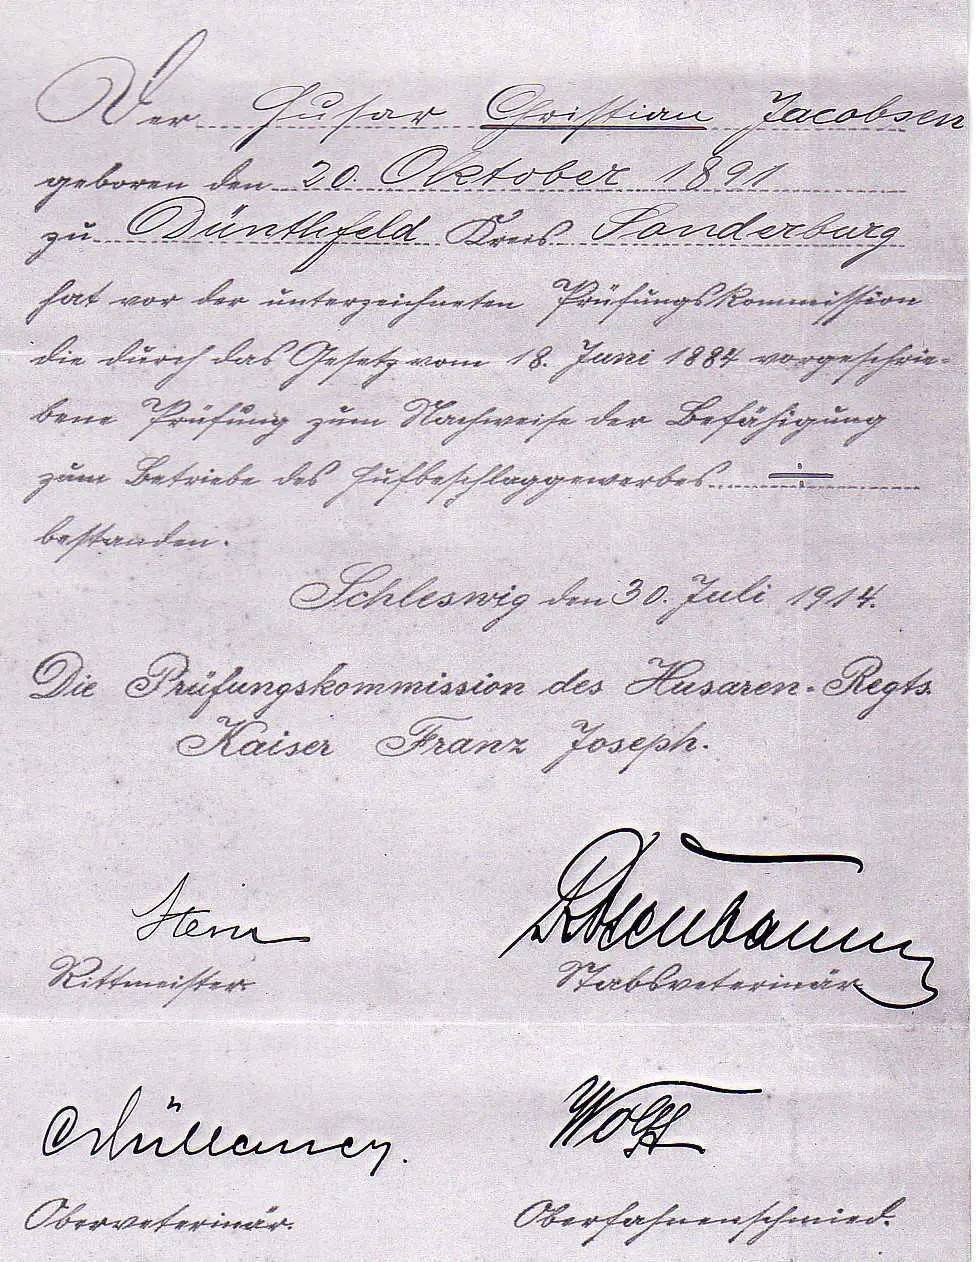 Der Husar Christian Jacobsen
geboren den 20. Oktober 1891
zu Dünthfeld Kreis Sonderburg
hat vor der unterzeichneten Prüfungskommission
die durch das Gesetz vom 18. Juni 1884 vorgeschrie-
bene Prüfung zum Nachweise der Befähigung
zum Betriebe des Hufbeschlaggewerbes ÷
bestanden.
Schleswig den 30. Juli 1914.
Die Prüfungskommission des Husaren-Regts.
Kaiser Franz Joseph.
Stern
Rosenbaum
Rittmeister.
Stabsveterinär.
Wolff
Oberveterinär.
Oberfahnenschmied.